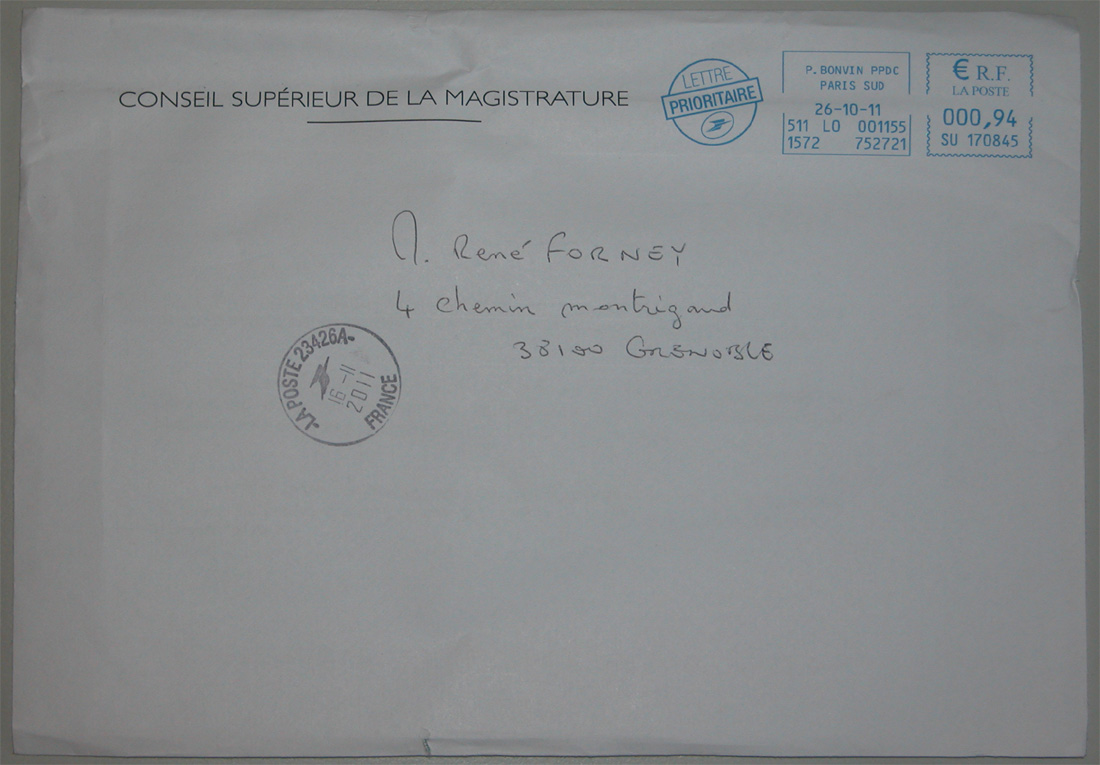 CONSEIL SUPÉRIEUR DE LA MAGISTRATURE
LETTRE
PRIORITAIRE
P. BONVIN PPDC
PARIS SUD
26-10-11
511 LO 001155
1572 752721
€ R.F.
LA POSTE
000,94
SU 170845
M. René FORNEY
4 chemin montrigaud
38100 GRENOBLE
LA POSTE 23426A-
16-11
2011
FRANCE